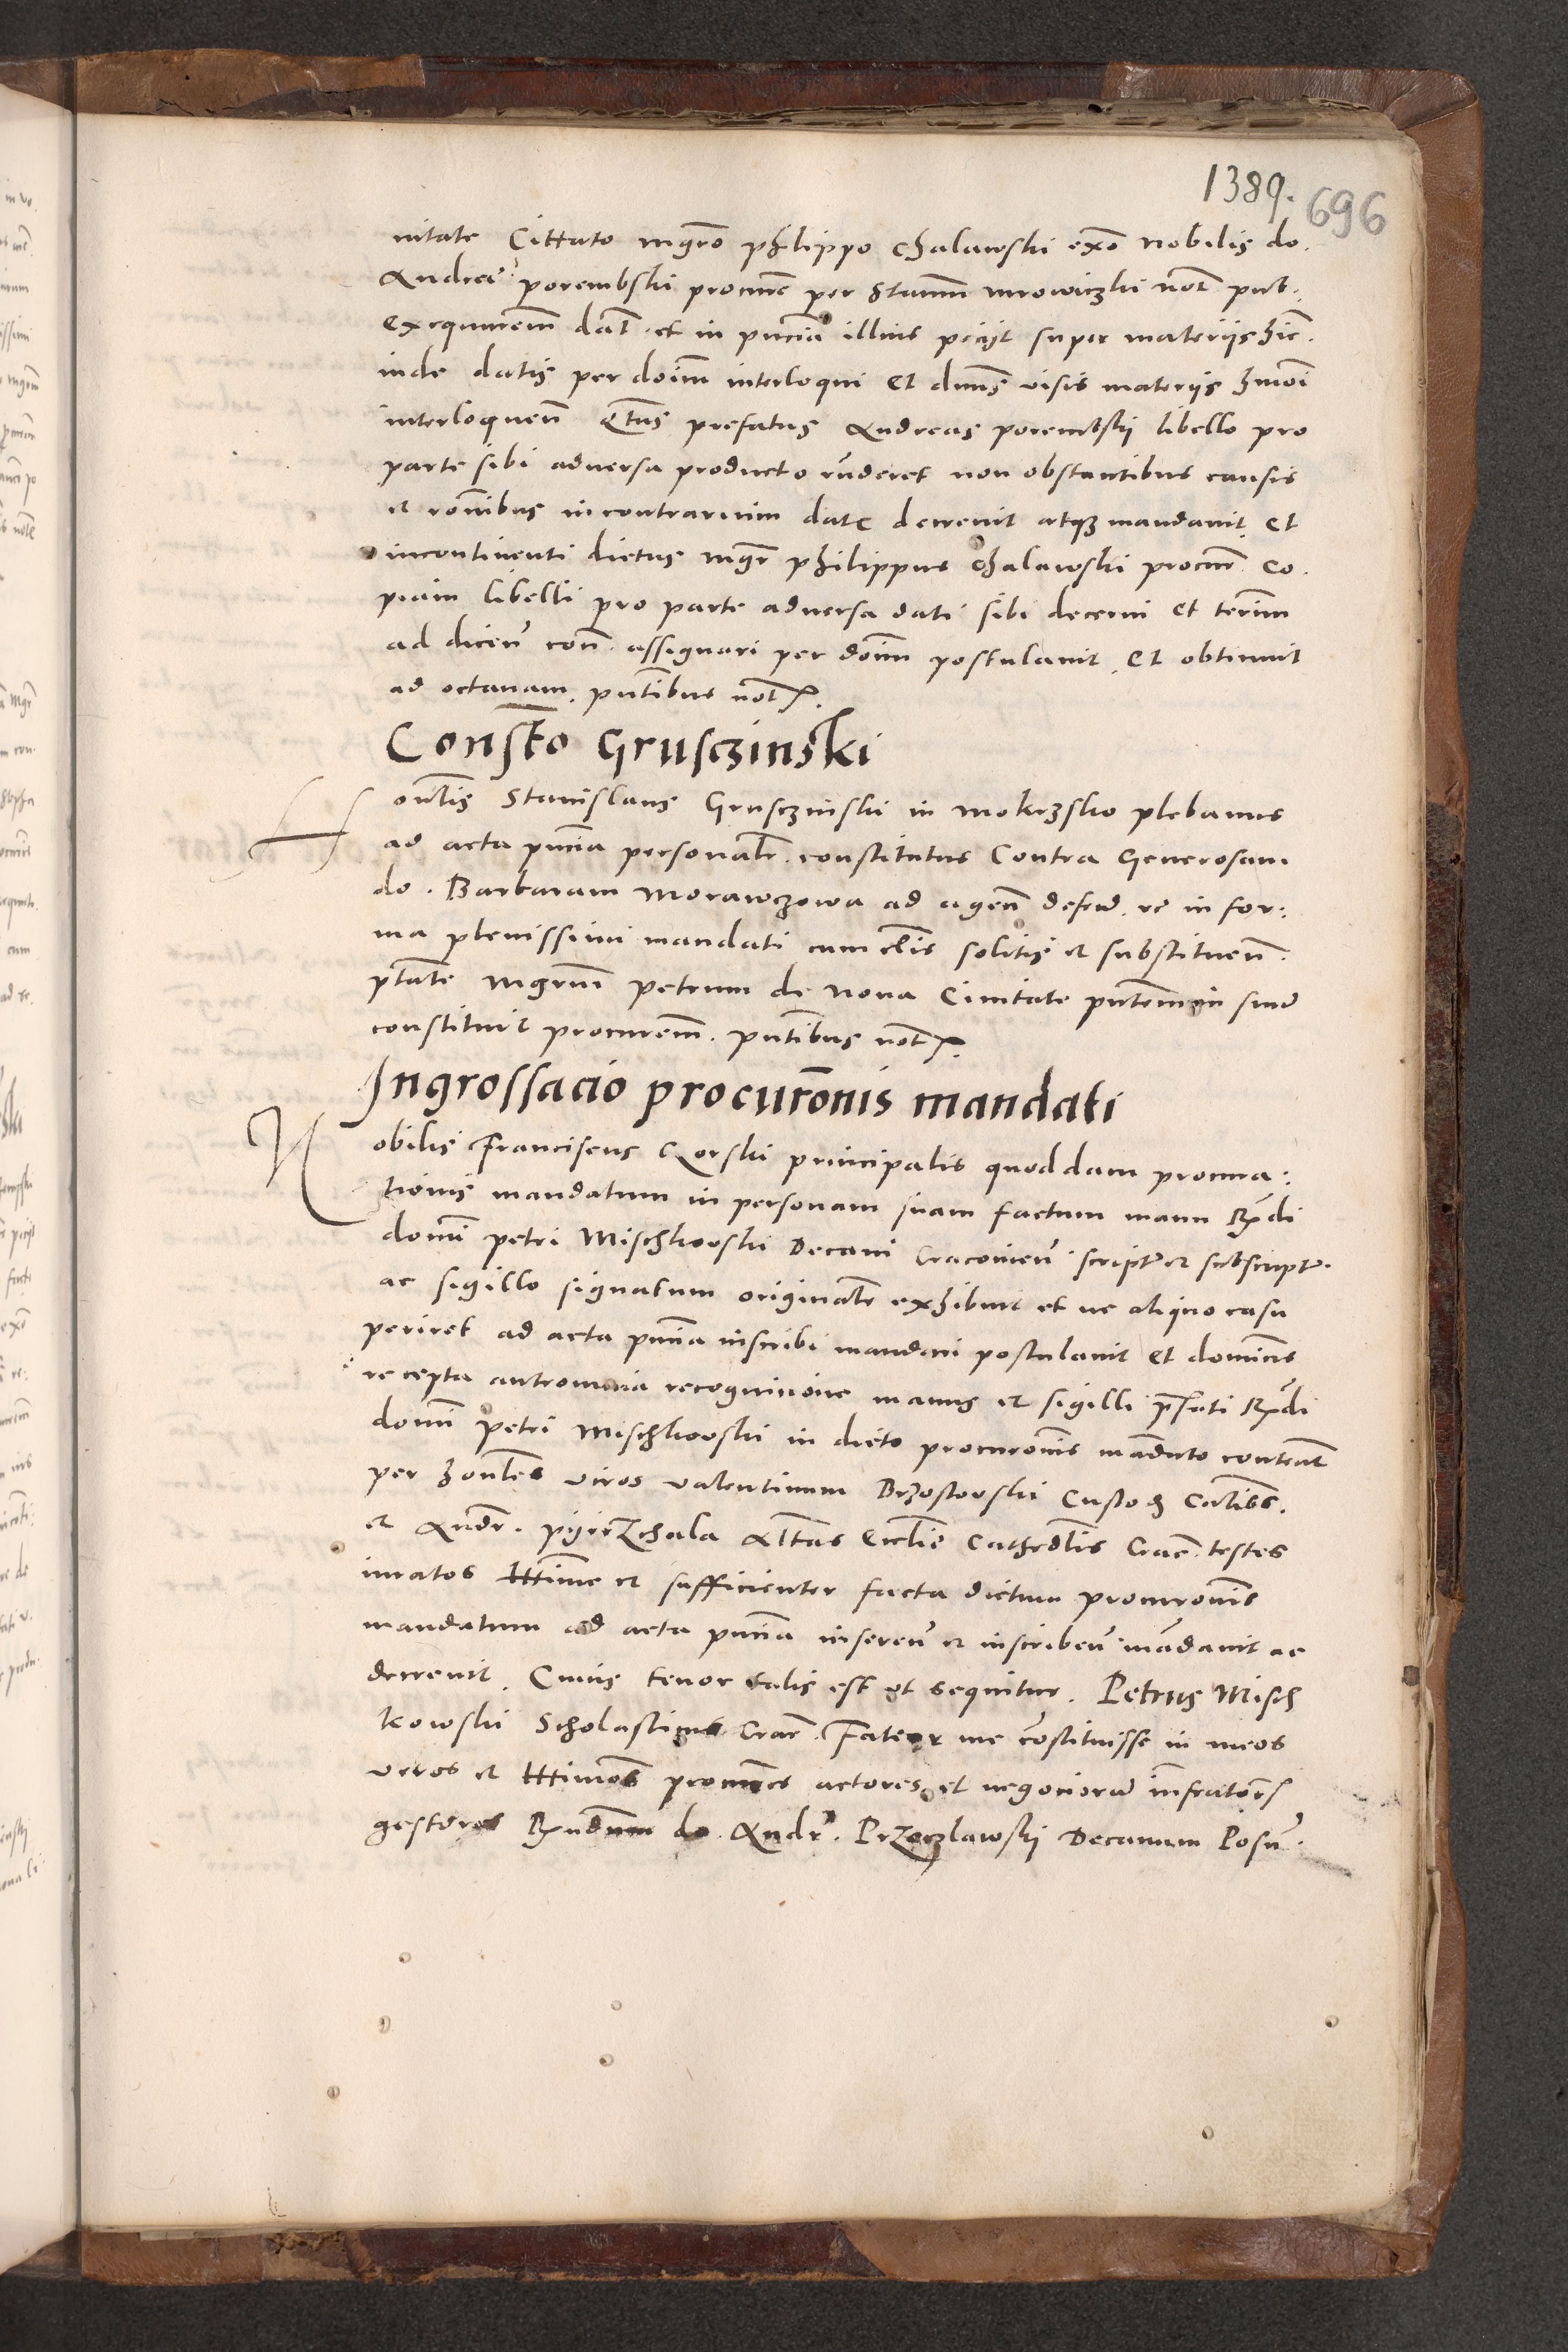 1389. 696
nitate Cittato mgro philippo Chalawski exo Nobilis do.
Andree porembski procure per Stanm mrowiczki not pub.
exequurem dat. et in pncia illius peciit super materiis hic.
inde datis per doim interloqui Et dnus visis materiis hmoi
interloquen prefatus Andreas porembskij libello pro
parte sibi adversa producto rnderet non obstantibus causis
et ronibus in contrarium datc decrevit atq mandavit et
incontinenti dictus mgr philippus Chalawski procur. Co.
piam libelli pro parte adversa dati sibi decerni et termm
ad dicen con. assignari per doim postulavit. Et obtinuit
ad octavam. pntibus not
Constto Grusczinski
Honlis Stanislaus Grusczinski in mokrzsko plebanus
ad acta pncia personalr. constitutus Contra Generosam
do. Barbaram Morawczowa ad agen defend. in for:
ma plenissimi mandati cum clis solitis et substituen.
ptate mgrum petrum de Nova Civitate pntem in suu
constituit procurem. pntibus not
Ingrossacio procuronis mandati
Nobilis Franciscus Gorski principalis quoddam procura:
tionis mandatum in personam suam factum manu Rndi
domi petri Mischkowski Decani Cracovien. script et subscript.
ac sigillo signatum originale exhibuit et ne aliquo casu
periret ad acta pncia inscribi mandari postulavit et dominus
recepta recognicione manus et sigilli prefati Rndi
domi petri Mischkowski in dicto procuronis mandato content
per honles viros valentinum Brzostowski Custod
et Andr. Altas Ecclie Cathedlis Crac. testes
iuratos lttime et sufficienter facta dictum procuronis
mandatum ad acta pncia inseren et inscriben mandavit ac
decrevit. Cuius tenor talis est et sequitur. Petrus Misch
kowski Scholasticus Crac. Fateor me costituisse in meos
veros et lttimos procures actores et negocioru infrascr
gestores Rndum do. Andr. Przeczlawskij Decanum Posn.